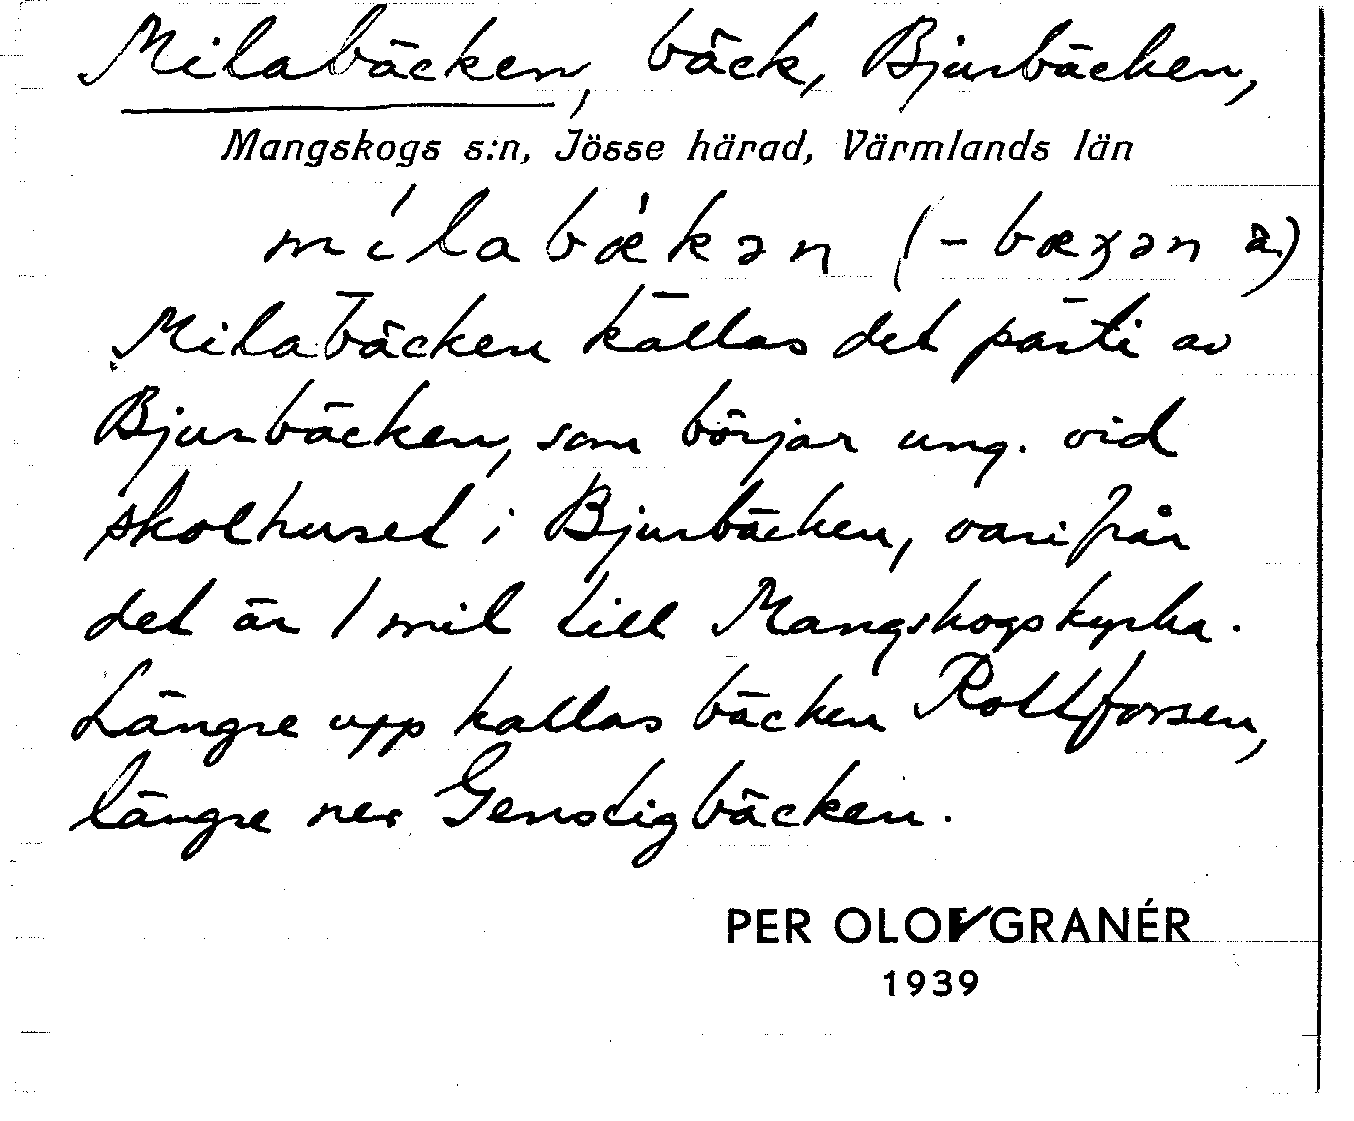 Milabäcken, bäck, Bjurbäcken,
Mangskogs s:n, Jösse härad, Värmlands län
mílabǽkən (-bæɣən ä.)
Milabäcken kallas det parti av
Bjurbäcken, som börjar ung. vid
skolhuset i Bjurbäcken, varifrån
det är 1 mil till Mangskogs kyrka.
Längre upp kallas bäcken
längre ner Genstigbäcken.
PER OLOF GRANÉR
1939